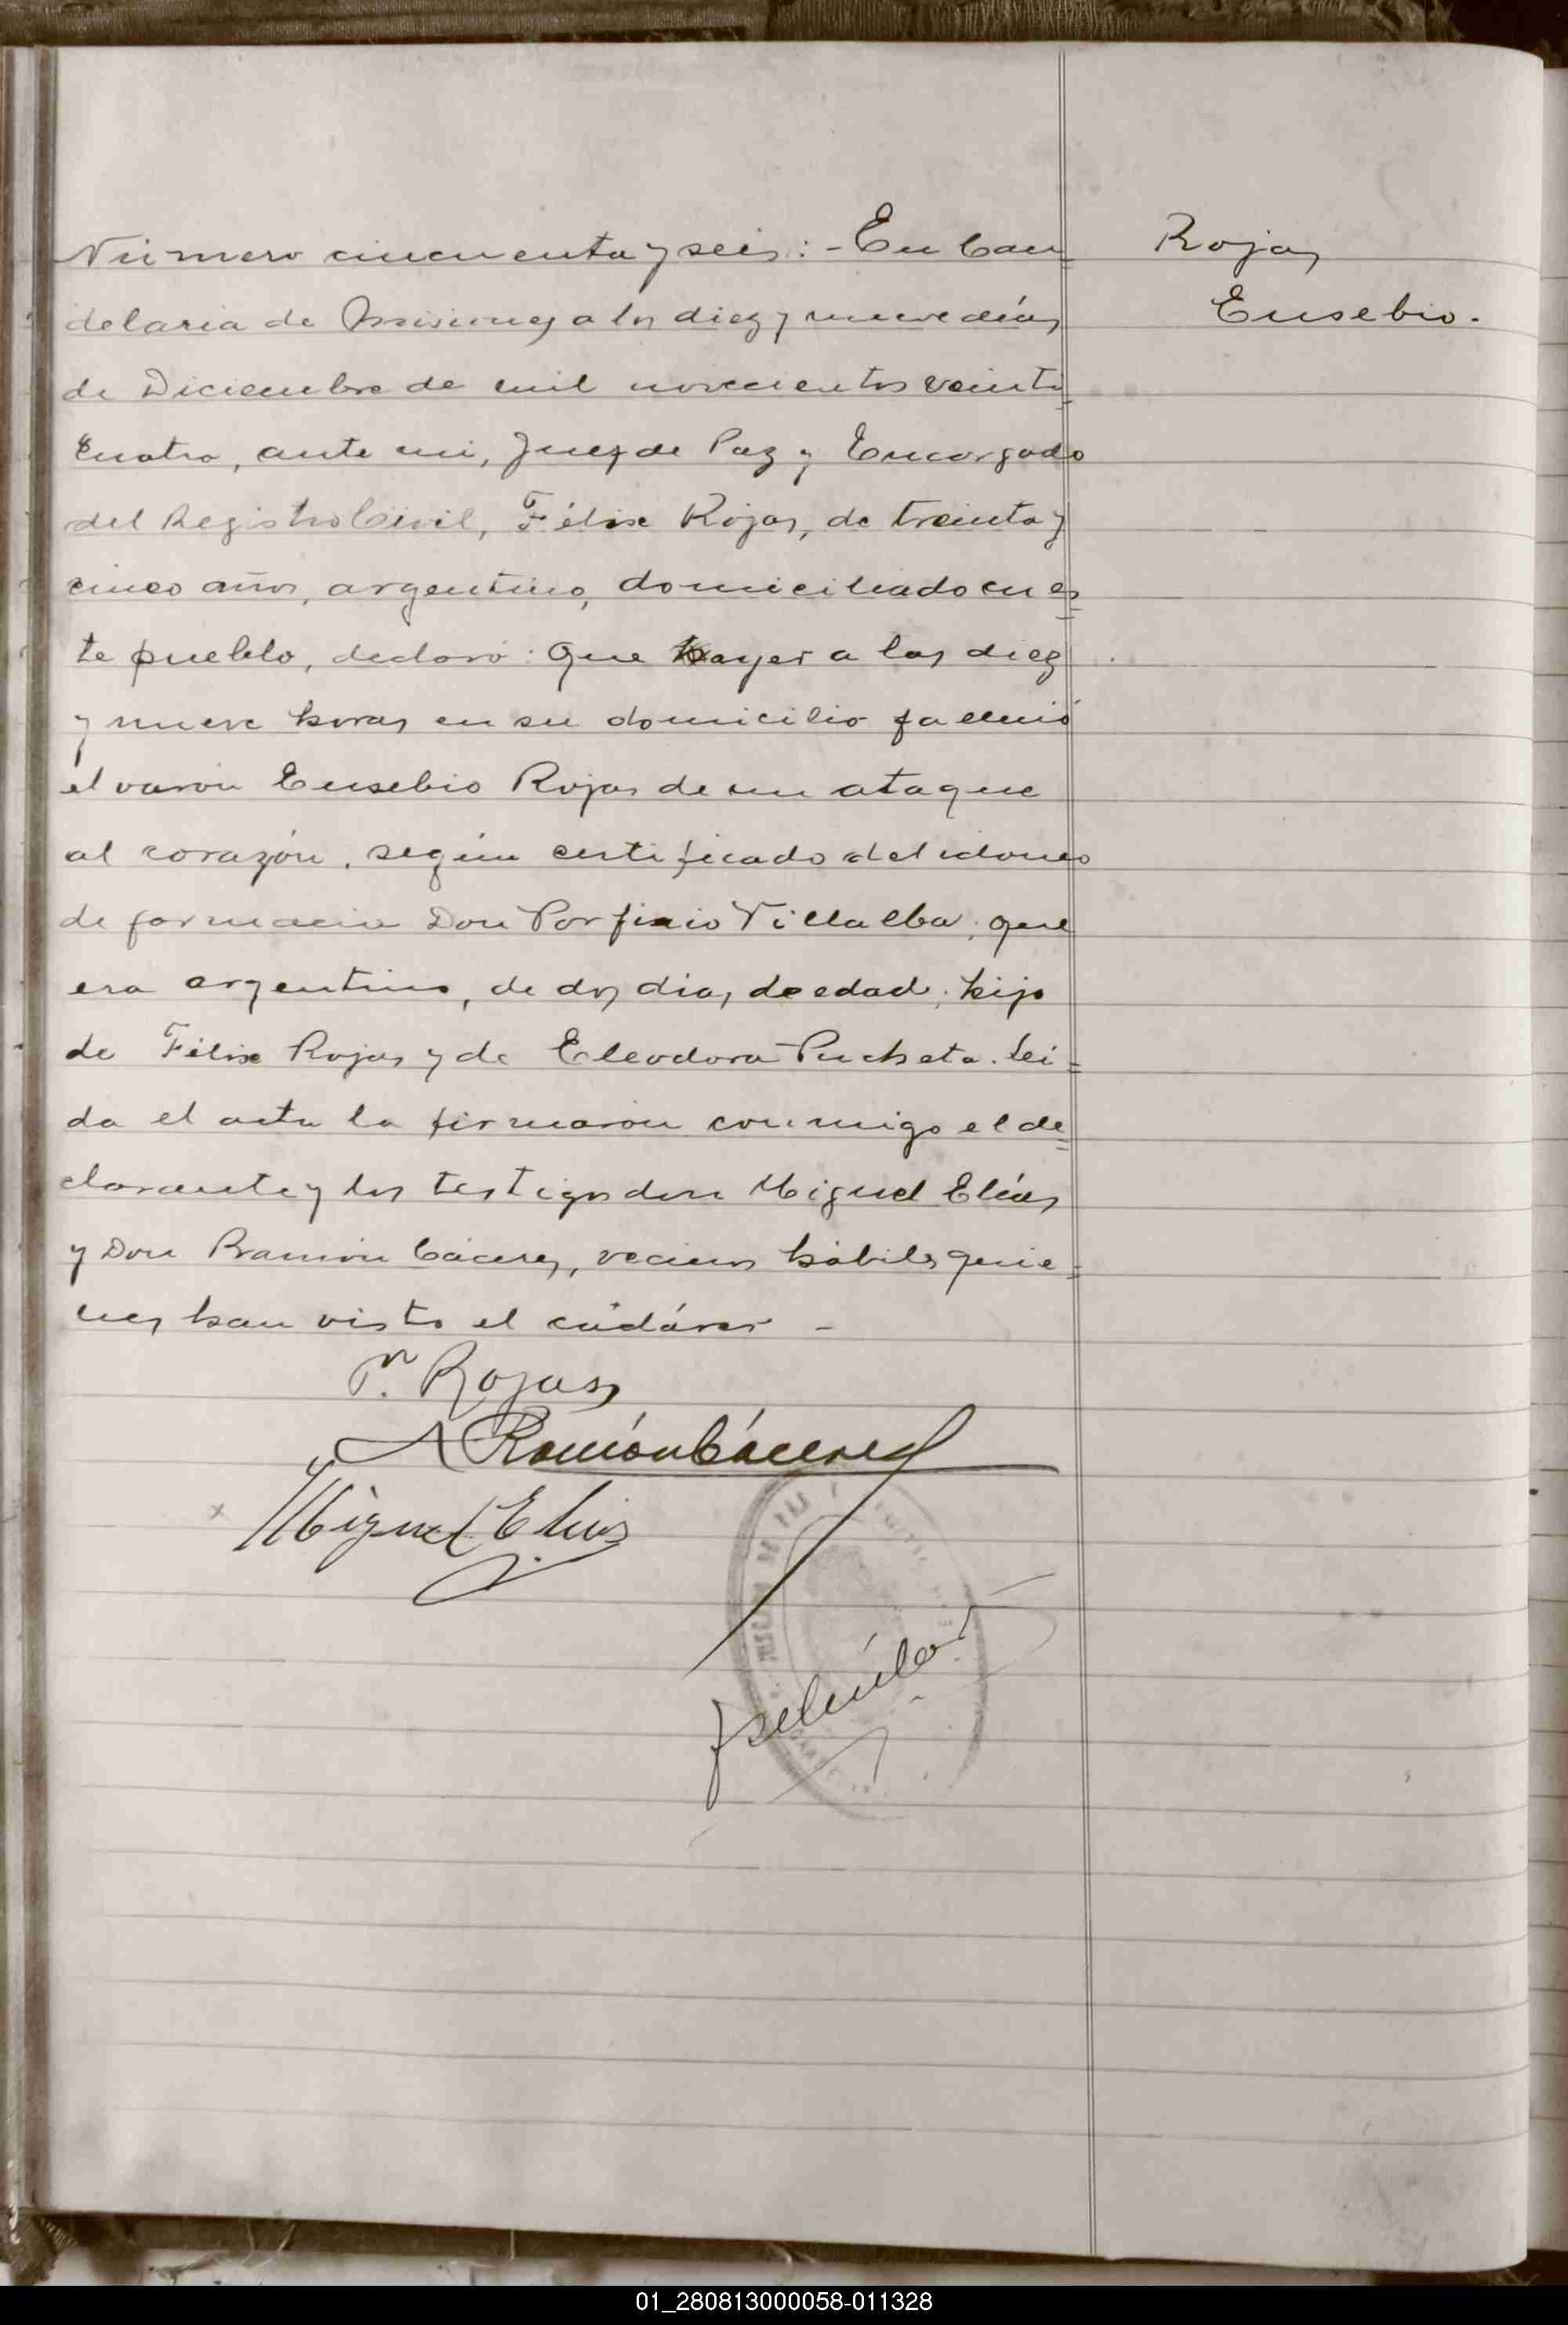 Número cincuenta y seis: - En Can
Rojas
Eusebio.
delaria de Misiones a los diez y nueve días
de Diciembre de mil novecientos veinti
cuatro, ante mi, Juez de Paz y Encargado
del Registro Civil, Félix Rojas, de treinta y
cinco años, argentino, domiciliado en es
te pueblo, declaró: Que ayer a las diez
y nueve horas en su domicilio falleció
el varón Eusebio Rojas de un ataque
al corazón, según certificado del idoneo
de farmacia Don Porfirio Villalba; que
era argentino, de dos dias de edad; hijo
de Félix Rojas y de Eleodora Pucheta. Lei=
da el acta la firmaron conmigo el de
clarante y los testigos don Miguel Elías
y Don Ramón Cáceres, vecinos hábiles quie=
nes han visto el cadáver -
F. Rojas
Ramón Cáceres
Miguel Elias
01_280813000058-011328